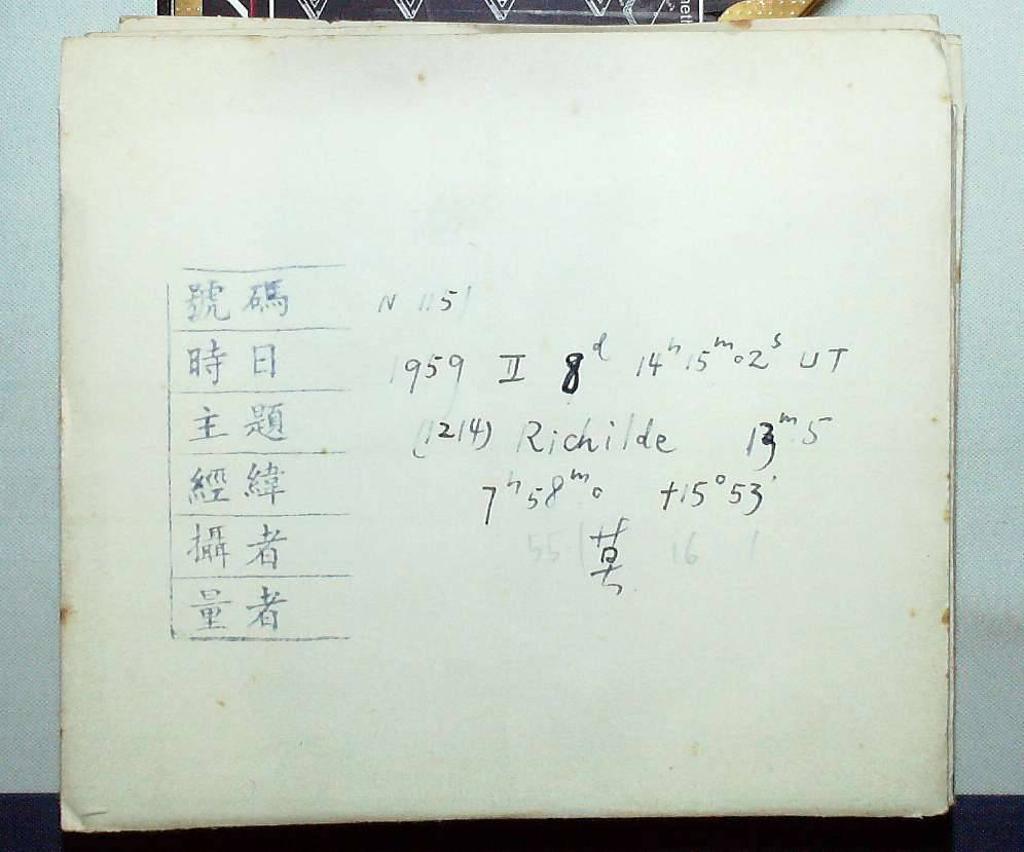 號碼 N 1151
時日 1959 II 8ᵈ 14ʰ 15ᵐ 02ˢ UT
主題 (1214) Richilde 13ᵐ.5
經緯 7ʰ 58ᵐ.0 +15°53'
攝者
55 16 1
量者